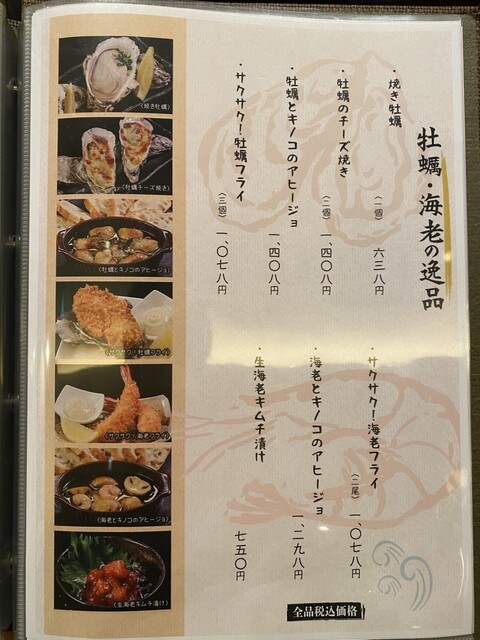 牡蠣・海老の逸品
・焼き牡蠣
(一個) 六三八円
・牡蠣のチーズ焼き
(二個) 一、四〇八円
・牡蠣とキノコのアヒージョ
一、四〇八円
・サクサク！牡蠣フライ
(三個) 一、〇七八円
・サクサク！海老フライ
(二尾) 一、〇七八円
・海老とキノコのアヒージョ
一、二九八円
・生海老キムチ漬け
七五〇円
全品税込価格
(焼き牡蠣)
(牡蠣チーズ焼き)
(牡蠣とキノコのアヒージョ)
(サクサク！牡蠣フライ)
(サクサク！海老フライ)
(海老とキノコのアヒージョ)
(生海老キムチ漬け)